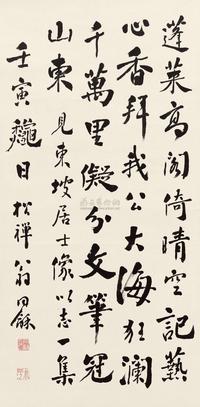 蓬萊高阁倚晴空記爇
心香拜我公大海狂瀾
千萬里儗分文筆冠
山東 見東坡居士像以志一集
壬寅龝日 松禪翁同龢